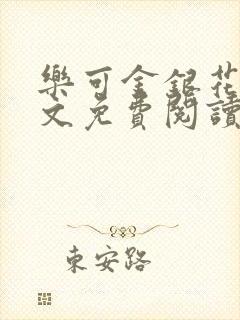 樂可金銀花
文免費閱讀
東安路